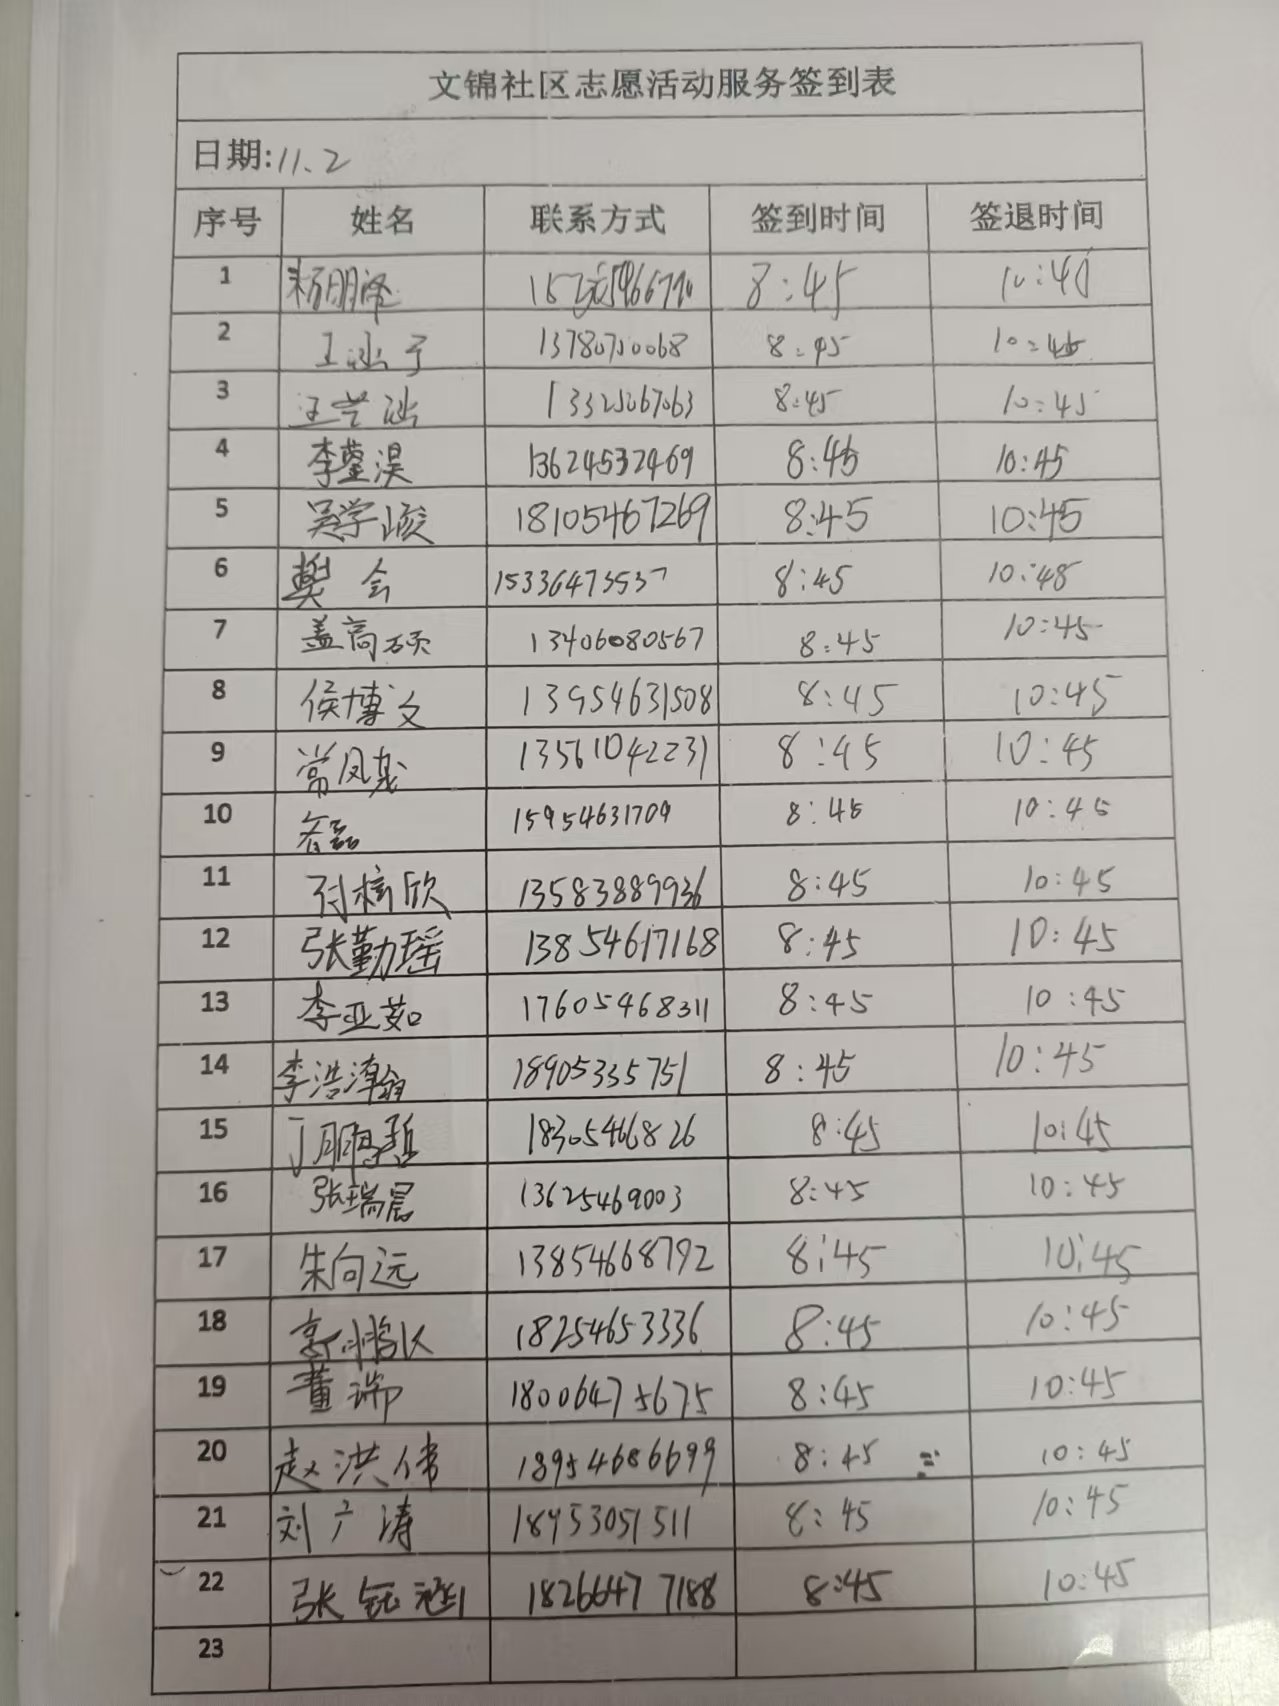 文锦社区志愿活动服务签到表
日期:11.2
序号 姓名 联系方式 签到时间 签退时间
1 杨朋泽 8:45
2 王 13780710068 8:45 10:45
3 王艺涵 13325067063 8:45 10:45
4 李蓥淏 13624532469 8:45 10:45
5 吴学峻 18105467269 8:45 10:45
6 樊会 15336473537 8:45 10:45
7 盖高硕 13406080567 8:45 10:45
8 侯博文 13954631508 8:45 10:45
9 常凤茂 13561042231 8:45 10:45
10 15954631709 8:45 10:45
11 孙梓欣 13583889936 8:45 10:45
12 张勤瑶 13854617168 8:45 10:45
13 李亚茹 17605468311 8:45 10:45
14 李浩瀚 18905335751 8:45 10:45
15 丁鹏哲 18305466826 8:45 10:45
16 张瑞晨 13625469003 8:45 10:45
17 朱向远 13854668792 8:45 10:45
18 18254653336 8:45 10:45
19 董瑞 18006475675 8:45 10:45
20 赵洪伟 18954686699 8:45 10:45
21 刘广涛 18953051511 8:45 10:45
22 张钰涵 18266477188 8:45 10:45
23